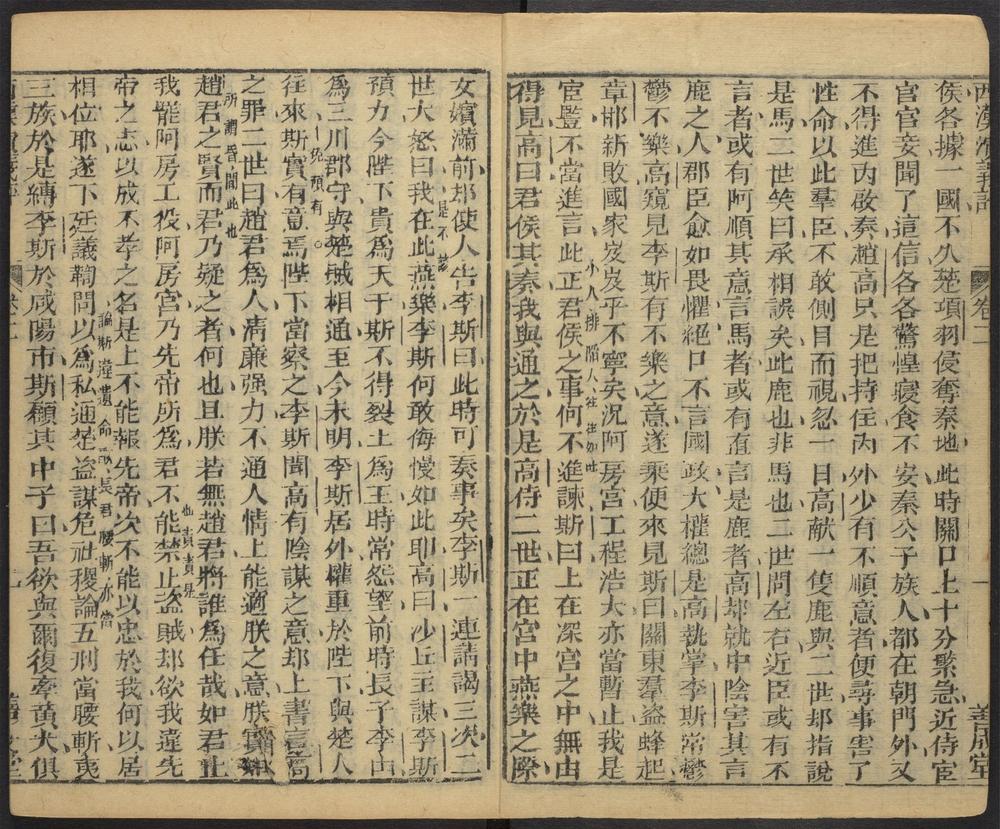 西漢演義評
卷二
一
善成堂
侯各據一國不久楚項羽侵奪秦地此時關口上十分緊急近侍宦
官宮妾聞了這信各各驚惶寢食不安秦公子族人都在朝門外又
不得進內啟奏趙高只是把持住內外少有不順意者便尋事害了
性命以此羣臣不敢側目而視忽一日高献一隻鹿與二世却指說
是馬二世笑曰承相誤矣此鹿也非馬也二世問左右近臣或有不
言者或有阿順其意言馬者或有直言是鹿者高却就中陰害其言
鹿之人郡臣愈如畏懼絕口不言國政大權總是高執掌李斯常鬱
鬱不樂高窺見李斯有不樂之意遂乘便來見斯曰關東羣盜蜂起
章邯新敗國家岌岌乎不寧矣況阿房宮工程浩大亦當暫止我是
小人排陷人往往如此
宦豎不當進言此正君侯之事何不進諫斯曰上在深宮之中無由
得見高曰君侯其奏我與通之於是高侍二世正在宮中燕樂之際
女嬪滿前却使人告李斯曰此時可奏事矣李斯一連請謁三次二
是不該
世大怒曰我在此燕樂李斯何敢侮慢如此耶高曰沙丘主謀李斯
預力今陛下貴為天子斯不得裂土為王時常怨望前時長子李由
為三川郡守與楚賊相通至今未明李斯居外權重於陛下與楚人
往來斯實有意焉陛下當察之李斯聞高有陰謀之意却上書言高
之罪二世曰趙君為人清廉强力不通人情上能適朕之意朕實
所謂昏闇此也
趙君之賢而君乃疑之者何也且朕若無趙君將誰為任哉如君止
我罷阿房工役阿房宮乃先帝所為君不能禁止盜賊却欲我違先
也責責是
帝之志以成不孝之名是上不能報先帝次不能以忠於我何以居
相位耶遂下廷議鞫問以為私通楚盜謀危社稷論五刑當腰斬夷
論斯違遺命弒長君腰斬亦當
三族於是縛李斯於咸陽市斯顧其中子曰吾欲與爾復牽黃犬俱
卷二